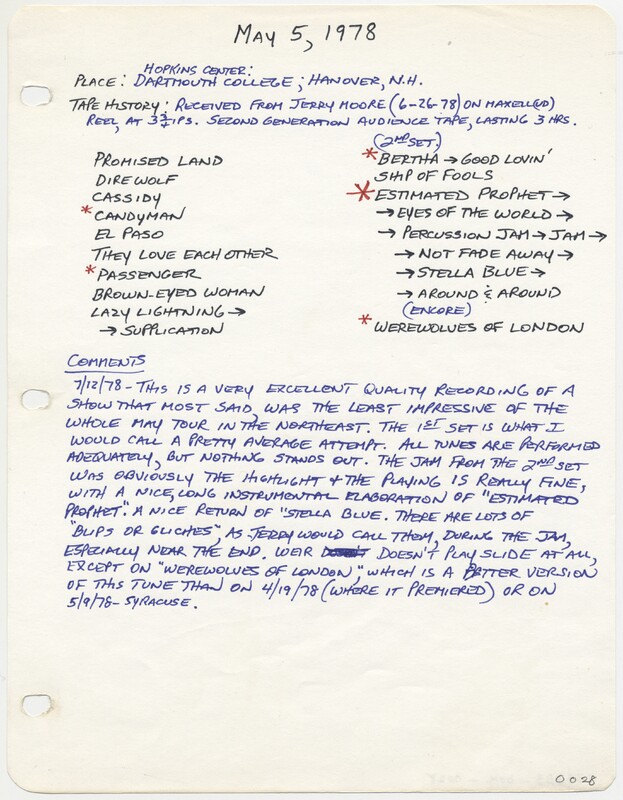 MAY 5, 1978
HOPKINS CENTER:
PLACE: DARTMOUTH COLLEGE; HANOVER, N.H.
TAPE HISTORY: RECEIVED FROM JERRY MOORE (6-26-78) ON MAXELL(UD)
REEL, AT 3¾ IPS. SECOND GENERATION AUDIENCE TAPE, LASTING 3 HRS.
PROMISED LAND
DIRE WOLF
CASSIDY
* CANDYMAN
EL PASO
THEY LOVE EACH OTHER
* PASSENGER
BROWN-EYED WOMAN
LAZY LIGHTNING →
→ SUPPLICATION
(2ND SET)
* BERTHA → GOOD LOVIN'
SHIP OF FOOLS
* ESTIMATED PROPHET →
→ EYES OF THE WORLD →
→ PERCUSSION JAM → JAM →
→ NOT FADE AWAY →
→ STELLA BLUE →
→ AROUND & AROUND
(ENCORE)
* WEREWOLVES OF LONDON
COMMENTS
7/12/78 - THIS IS A VERY EXCELLENT QUALITY RECORDING OF A
SHOW THAT MOST SAID, WAS THE LEAST IMPRESSIVE OF THE
WHOLE MAY TOUR IN THE NORTHEAST. THE 1ST SET IS WHAT I
WOULD CALL A PRETTY AVERAGE ATTEMPT. ALL TUNES ARE PERFORMED
ADEQUATELY, BUT NOTHING STANDS OUT. THE JAM FROM THE 2ND SET
WAS OBVIOUSLY THE HIGHLIGHT & THE PLAYING IS REALLY FINE,
WITH A NICE, LONG INSTRUMENTAL ELABORATION OF "ESTIMATED
PROPHET." A NICE RETURN OF "STELLA BLUE. THERE ARE LOTS OF
"BLIPS OR GLICHES", AS JERRY WOULD CALL THEM, DURING THE JAM,
ESPECIALLY NEAR THE END. WEIR DOESN'T PLAY SLIDE AT ALL,
EXCEPT ON "WEREWOLVES OF LONDON," WHICH IS A BETTER VERSION
OF THIS TUNE THAN ON 4/19/78 (WHERE IT PREMIERED) OR ON
5/9/78 - SYRACUSE.
0028